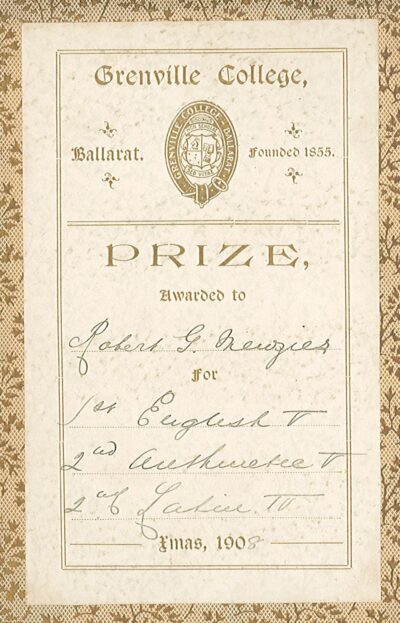 Grenville College,
GRENVILLE COLLEGE BALLARAT
Ballarat.
Founded 1855.
PRIZE,
Awarded to
Robert G. Menzies
For
1st English V
2nd Arithmetic V
2nd Latin IV
Xmas, 1908